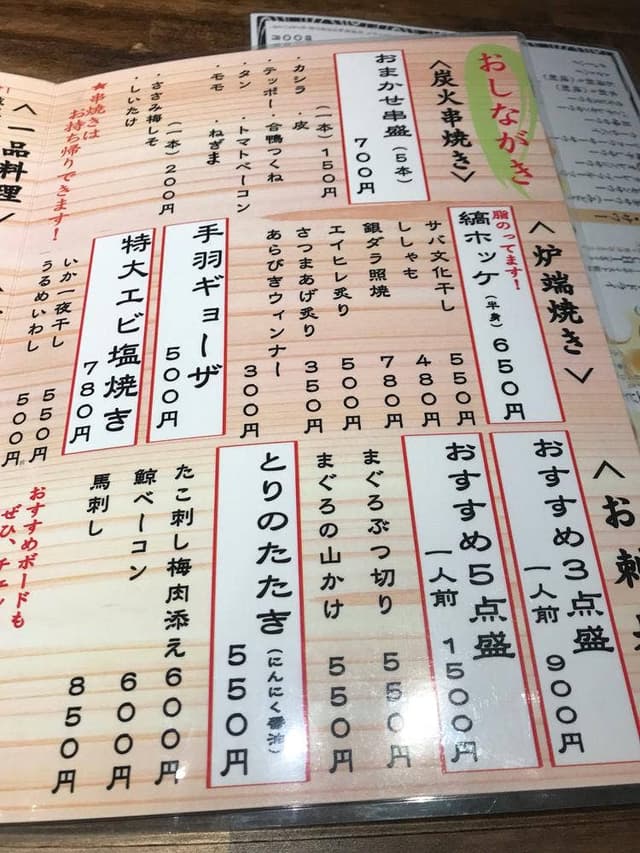 おしながき
〈炭火串焼き〉
おまかせ串盛(5本)
700円
(一本)150円
・カシラ ・皮
・テッポー ・合鴨つくね
・タン ・トマトベーコン
・モモ ・ねぎま
(一本)200円
・ささみ梅しそ
・しいたけ
★串焼きは
お持ち帰りできます!
〈一品料理〉
〈炉端焼き〉
脂のってます!
縞ホッケ(半身)650円
サバ文化干し 550円
ししゃも 480円
銀ダラ照焼 780円
エイヒレ炙り 500円
さつまあげ炙り 350円
あらびきウィンナー 300円
手羽ギョーザ
500円
特大エビ塩焼き
780円
いか一夜干し 550円
うるめいわし 500円
〈お刺
おすすめ3点盛
一人前 900円
おすすめ5点盛
一人前 1500円
まぐろぶつ切り 550円
まぐろの山かけ 550円
とりのたたき(にんにく醤油)
550円
たこ刺し梅肉添え 600円
鯨ベーコン 600円
馬刺し 850円
おすすめボードも
ぜひ、チェ